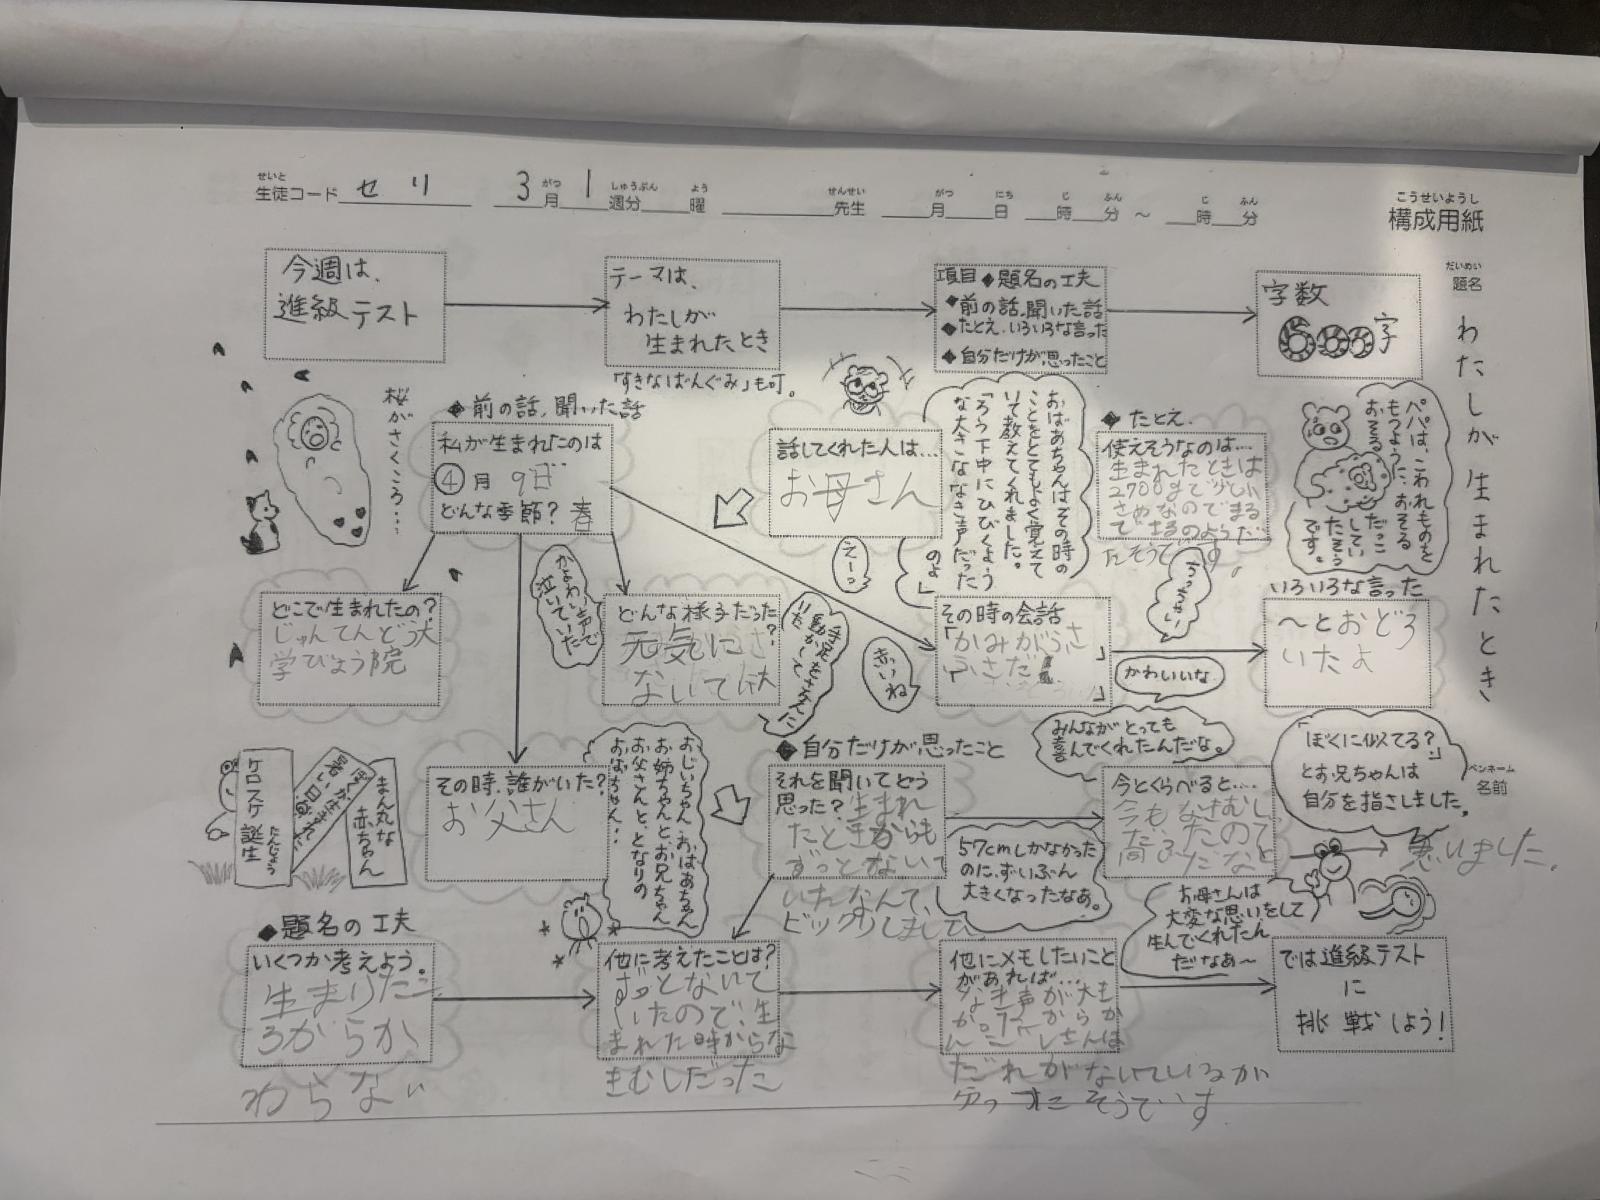 せいと
生徒コード セリ 3月 1週分 曜 先生 月 日 時 分 ～ 時 分
がつ しゅうぶん よう せんせい がつ にち じ ふん じ ふん
こうせいようし
構成用紙
だいめい
題名
わたしが生まれたとき
ペンネーム
名前
今週は、
進級テスト
テーマは、
わたしが
生まれたとき
「すきなばんぐみ」も可。
項目◆題名の工夫
◆前の話、聞いた話
◆たとえ、いろいろな言った
◆自分だけが思ったこと
字数
600字
桜がさくころ…
◆前の話、聞いた話
私が生まれたのは
④月 9日
どんな季節？春
話してくれた人は…
お母さん
おばあちゃんはその時の
ことをとてもよく覚えて
いて教えてくれました。
「ろう下中にひびくよう
な大きななき声だった
のよ」
えーっ
◆たとえ
使えそうなのは…
生まれたときは
2700gで少し小
さめなのでまる
パパは、こわれものを
もつように、おそる
おそる
だっこ
してい
たそう
です。
どこで生まれたの？
じゅんてんどう大
学びょう院
かよわい声で
泣いていた
どんな様子だった？
元気に
ないてた
手足をさかんに
動かして
いた
赤いね
その時の会話
「かみがふさ
ふさだ
」
うっちゃい
かわいいな
いろいろな言った
～とおどろ
いたよ
ケロスケ誕生
たんじょう
ぼくが生まれた
暑い日
まん丸な
赤ちゃん
その時、誰がいた？
お父さん
おじいちゃん、おばあちゃん
お姉ちゃんとお兄ちゃん
お父さんと、となりの
おばちゃん…
◆自分だけが思ったこと
それを聞いてどう
思った？生まれ
たときからも
ずっとないて
いたなんて、
ビックリしまして、
みんながとっても
喜んでくれたんだな。
今とくらべると…
今もなきむし
だったので
思いました。
57cmしかなかった
のに、ずいぶん
大きくなったなあ。
「ぼくに似てる？」
とお兄ちゃんは
自分を指さしました。
お母さんは
大変な思いをして
生んでくれたん
だなあ～
◆題名の工夫
いくつか考えよう。
生まりたこ
ろからか
わらない
他に考えたことは？
ずっとないて
いたので、生
まれた時からな
きむしだった
他にメモしたいこと
があれば…
なき声が大き
だれがないているか
分ったそうでいす
では進級テスト
に
挑戦しよう！